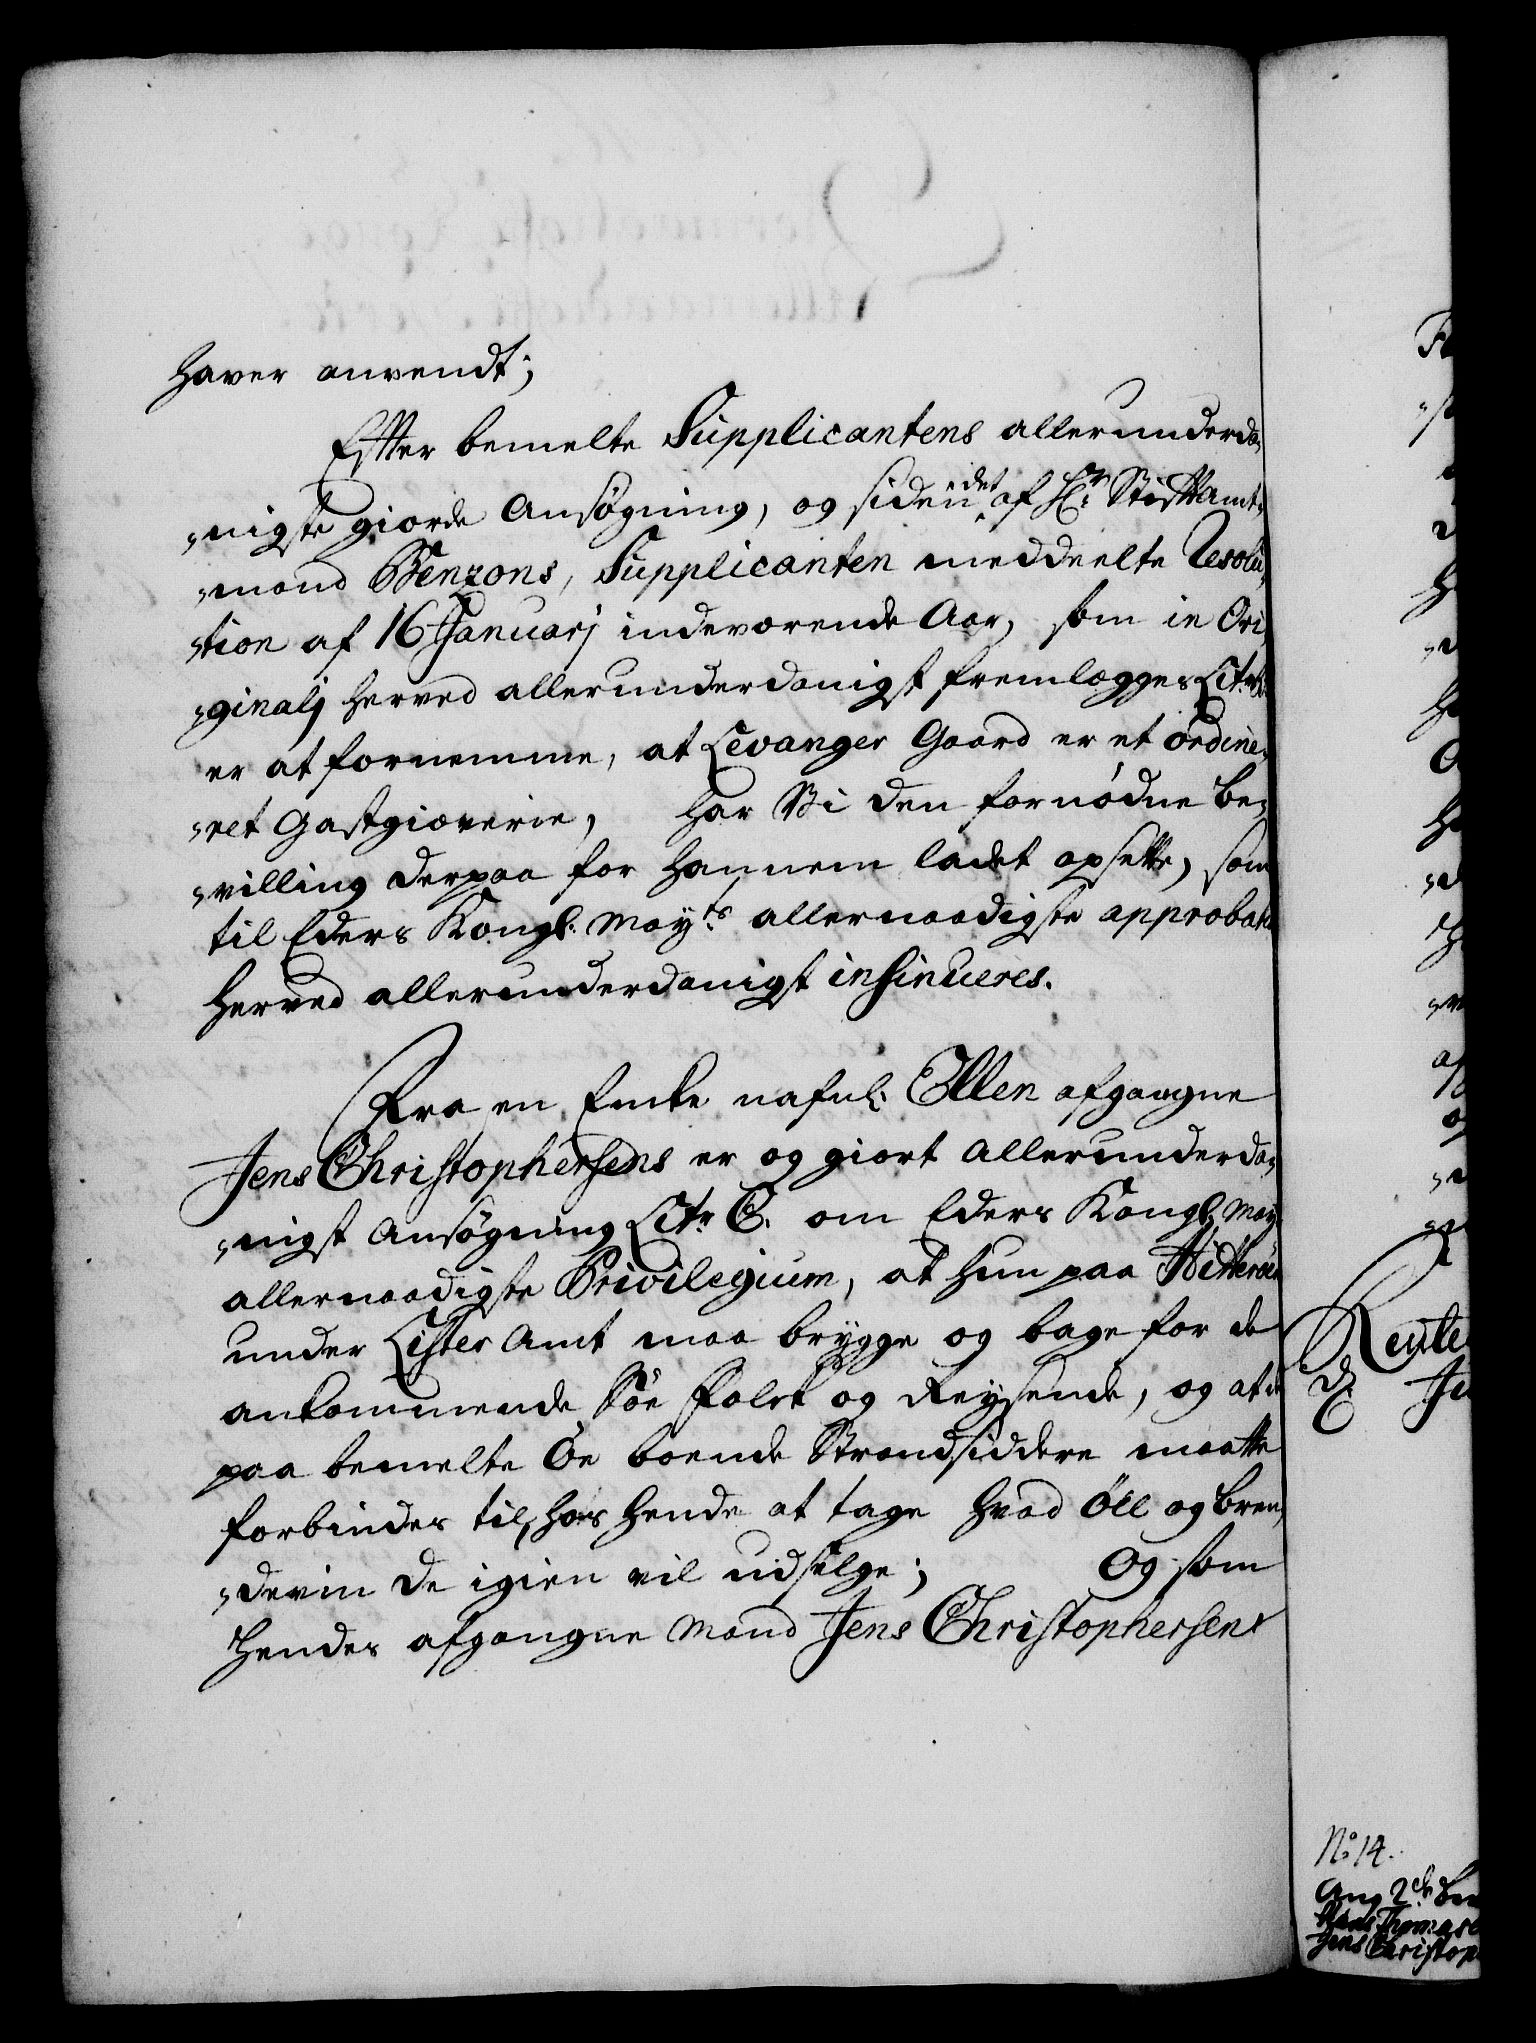 haver anvendt;
Efter bemelte Supplicantens allerunderda„
„nigste giorde Ansøgning, og siden det af Hr. Stiftamt„
„mand Benzons, Supplicanten meddeelte Resolu„
„tion af 16 Januarj indeværende Aar, som in Ori„
„ginalj herved allerunderdanigst fremlægges Litr.
er at fornemme, at Levanger Gaard er et ordine„
„ret Gastgiøverie, har Vi den fornødne be„
„villing derpaa for hannem ladet opsette, som
til Eders Kongl. May.ts allernaadigste approbation
herved allerunderdanigst insinueres.
Fra en Encke nafnl. Ellen afgangne
Jens Christophersens er og giort allerunderda„
„nigst Ansøgning Litr. C. om Eders Kongl. May.
allernaadigste Privilegium, at hun paa Hitterøe
under Lister Amt maa brygge og bage for de
ankommende Söe Folck og Reysende, og at de
paa bemelte Öe boende Strandsiddere maatte
forbindes til, hos hende at tage hvad Öll og bren„
„devin de igien vil udselge; Og som
hendes afgangne Mand Jens Christophersens
Rente
No 14.
Ang 2de
Hans Thomas
Jens Christoph